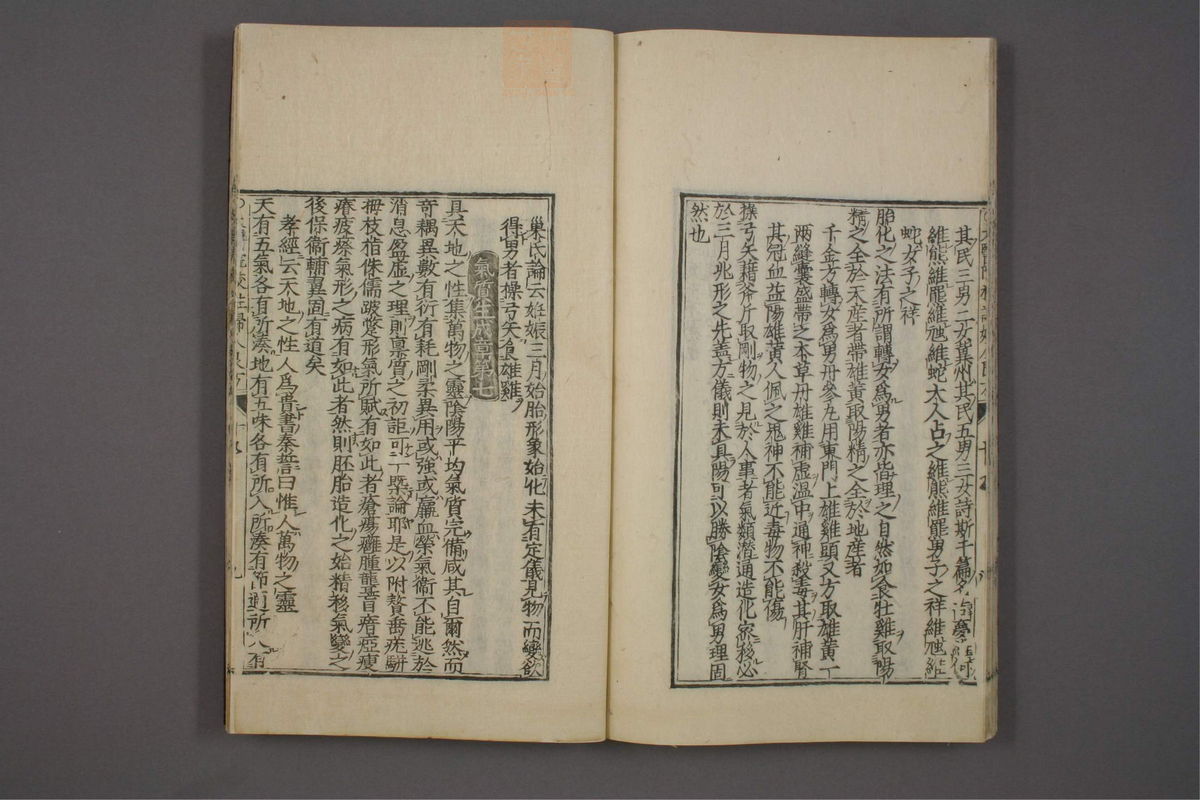 其民三男二女冀州其民五男三女詩斯干篇
維熊維羆維虺維蛇大人占之維熊維羆男子之祥維虺維
蛇女子之祥
胎化之法有所謂轉女爲男者亦皆理之自然如食牡雞取陽
精之全於天産者帶雄黃取陽精之全於地産者
千金方轉女爲男丹參丸用東門上雄雞頭又方取雄黃一
兩縫囊盛帶之本草丹雄雞補虛溫中通神殺毒其肝補腎
其冠血益陽雄黃人佩之鬼神不能近毒物不能傷
操弓矢藉斧斤取剛物之見於人事者氣類潛通造化密移必
於三月兆形之先蓋方儀則未具陽可以勝陰變女爲男理固
然也
巢氏論云姙娠三月始胎形象始化未有定儀見物而變欲
得男者操弓矢食雄雞
氣質生成章第七
具天地之性集萬物之靈陰陽平均氣質完備咸其自爾然而
奇耦異數有衍有耗剛柔異用或強或羸血榮氣衛不能逃於
消息盈虛之理則稟質之初詎可一槩論耶是以附贅垂疣駢
拇枝指侏儒跛躄形氣所賦有如此者瘡瘍癰腫聾盲瘖瘂瘦
瘠疲瘵氣形之病有如此者然則胚胎造化之始精移氣變之
後保衛輔翼固有道矣
孝經云天地之性人爲貴書秦誓曰惟人萬物之靈
天有五氣各有所湊地有五味各有所入所湊有節適所入有